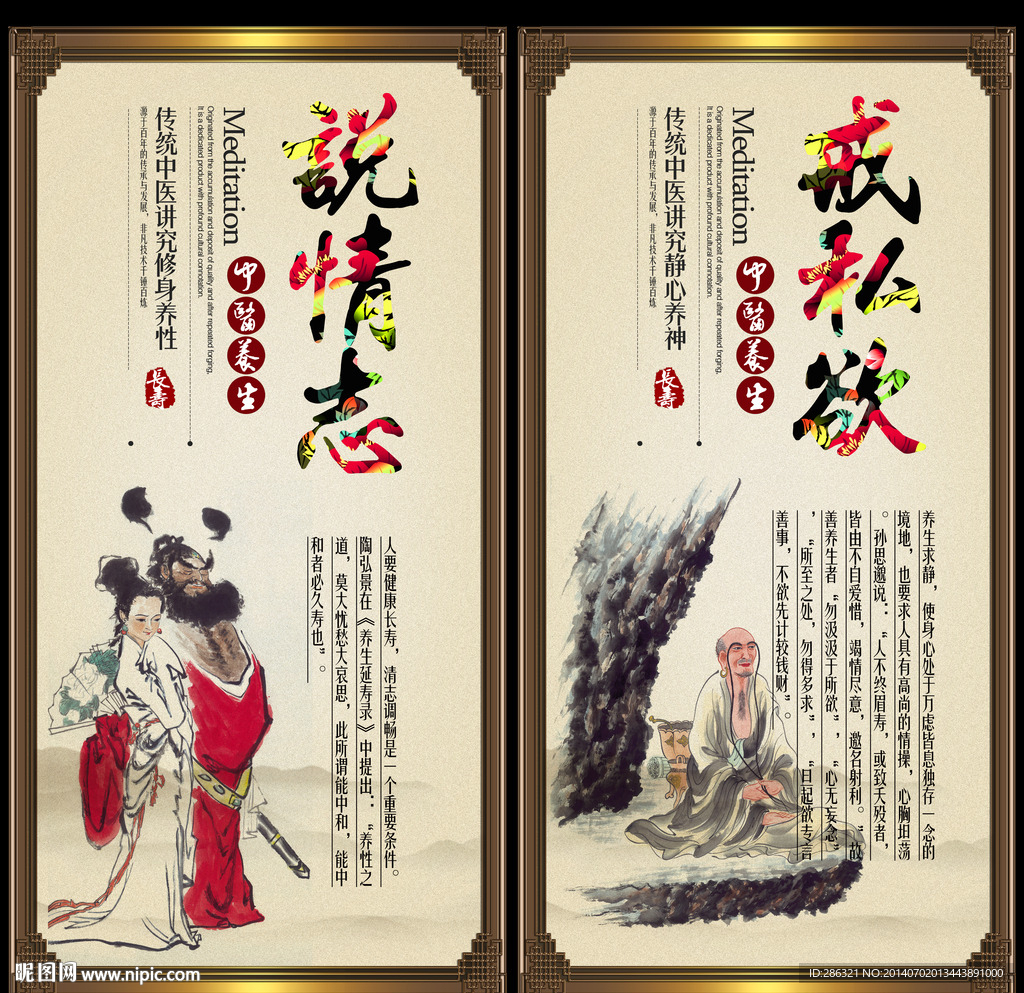 說情志
中醫養生
Meditation
Originated from the accumulation and deposit of quality and after repeated forging,
It is a dedicated product with profound cultural connotation.
传统中医讲究修身养性
源于百年的传承与发展，非凡技术千锤百炼
長壽
人要健康长寿，清志调畅是一个重要条件。
陶弘景在《养生延寿录》中提出：“养性之
道，莫大忧愁大哀思，此所谓能中和，能中
和者必久寿也”。
戒私欲
中醫養生
Meditation
Originated from the accumulation and deposit of quality and after repeated forging,
It is a dedicated product with profound cultural connotation.
传统中医讲究静心养神
源于百年的传承与发展，非凡技术千锤百炼
長壽
养生求静，使身心处于万虑皆息独存一念的
境地，也要求人具有高尚的情操，心胸坦荡
。孙思邈说：“人不终眉寿，或致夭殁者，
皆由不自爱惜，竭情尽意，邀名射利。”故
善养生者“勿汲汲于所欲”，“心无妄念”
，“所至之处，勿得多求”，“旦起欲专言
善事，不欲先计较钱财”。
昵图网 www.nipic.com
ID:286321 NO:20140702013443891000